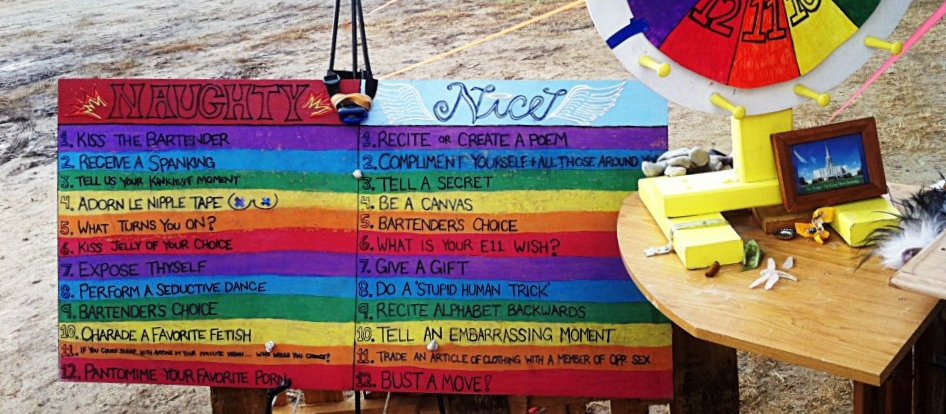 NAUGHTY
1. KISS THE BARTENDER
2. RECEIVE A SPANKING
3. TELL US YOUR KINKIEST MOMENT
4. ADORN LE NIPPLE TAPE
5. WHAT TURNS YOU ON?
6. KISS JELLY OF YOUR CHOICE
7. EXPOSE THYSELF
8. PERFORM A SEDUCTIVE DANCE
9. BARTENDER'S CHOICE
10. CHARADE A FAVORITE FETISH
11. IF YOU COULD WITH ANYONE IN YOUR WHO WOULD YOU CHOOSE?
12. PANTOMIME YOUR FAVORITE PORN
Nice!
1. RECITE OR CREATE A POEM
2. COMPLIMENT YOURSELF + ALL THOSE AROUND
3. TELL A SECRET
4. BE A CANVAS
5. BARTENDER'S CHOICE
6. WHAT IS YOUR E11 WISH?
7. GIVE A GIFT
8. DO A 'STUPID HUMAN TRICK'
9. RECITE ALPHABET BACKWARDS
10. TELL AN EMBARRASSING MOMENT
11. TRADE AN ARTICLE OF CLOTHING WITH A MEMBER OF OPP. SEX
12. BUST A MOVE!
12
11
10